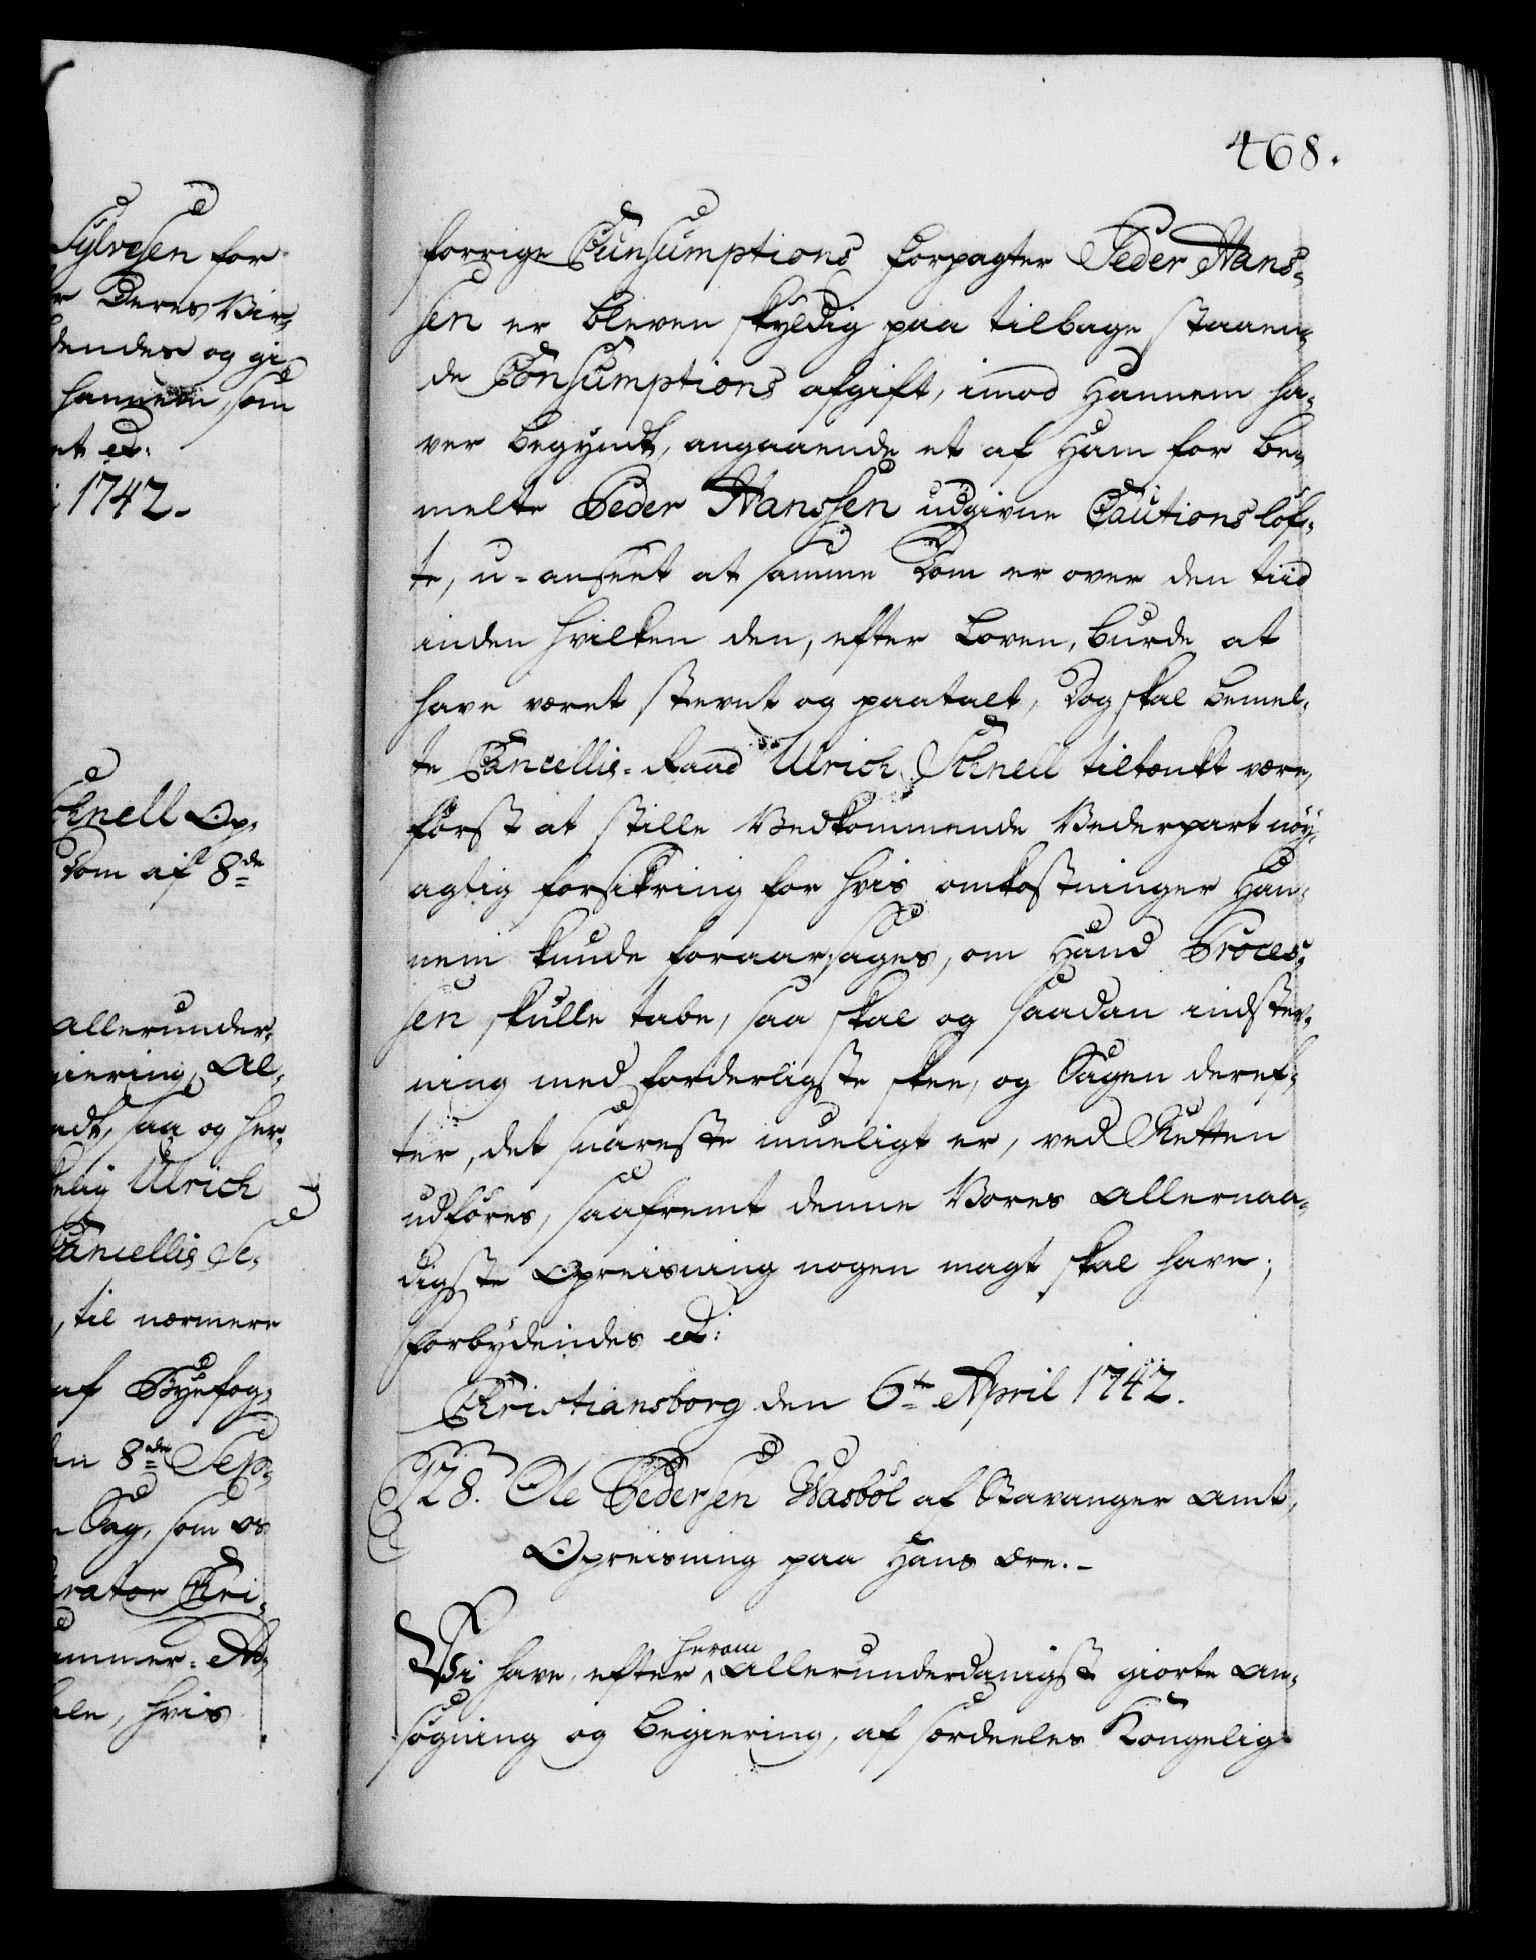 Sylvesen for
r Deres Vir-
dendes og gi-
hannem, som
et etc:
1742.
chnell Op-
Dom af 8de
allerunder-
giering, Al-
ndt, saa og her-
Ulrich
Cancellie Se-
, til nærmere
af Byefog-
en 8de Sep-
Sag, som os
rator Chri-
ammer-Ad-
ale, hvis
468.
forrige Cunsumptions Forpagter Peder Hans-
sen er bleven skyldig paa tilbage staaen-
de Consumptions afgift, imod Hannem ha-
ver begyndt, angaaende et af Ham for be-
melte Peder Hanssen udgivne Cautions løf-
te, u-anseet at samme Dom er over den tiid
inden hvilken den, efter Loven, burde at
have været stevnt og paatalt, Dog skal bemel-
te Cancellie-Raad Ulrich Schnell tiltænkt være,
først at stille Vedkommende Vederpart nøy-
agtig forsikring for hvis omkostninger Han-
nem kunde foraarsages, om Hand Proces-
sen skulle tabe, saa skal og saadan indstev-
ning med forderligste skee, og Sagen deref-
ter, det snareste mueligt er, ved Retten
udføres, saafremt denne Vores allernaa-
digste Opreisning nogen magt skal have;
forbydendes etc:
Christiansborg den 6te April 1742.
128. Ole Pedersen Wasbøl af Stavanger amt,
Opreisning paa Hans Ære.-
Vi have, efter herom allerunderdanigst giorte an-
søgning og begiering, af særdeeles Kongelig